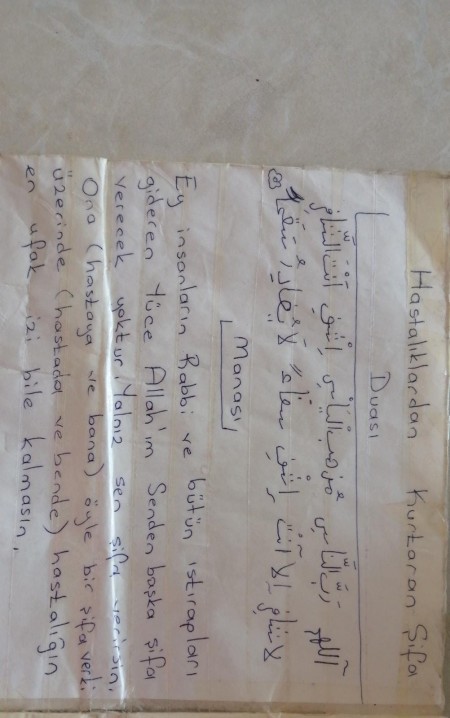 Hastalıklardan Kurtaran Şifa
Duası
اللهم رَبَّ النَّاسِ مُذْهِبَ الْبَاْسِ اِشْفِ اَنْتَ الشَّافِي
لَا شَافِيَ اِلَّا اَنْتَ اِشْفِ شِفَاءً لَا يُغَادِرُ سَقَمًا ③
Manası
Ey insanların Rabbi ve bütün ıstırapları
gideren Yüce Allah'ım Senden başka şifa
verecek yoktur. Yalnız sen şifa verirsin.
Ona (hastaya ve bana) öyle bir şifa verki
üzerinde (hastada ve bende) hastalığın
en ufak izi bile kalmasın.